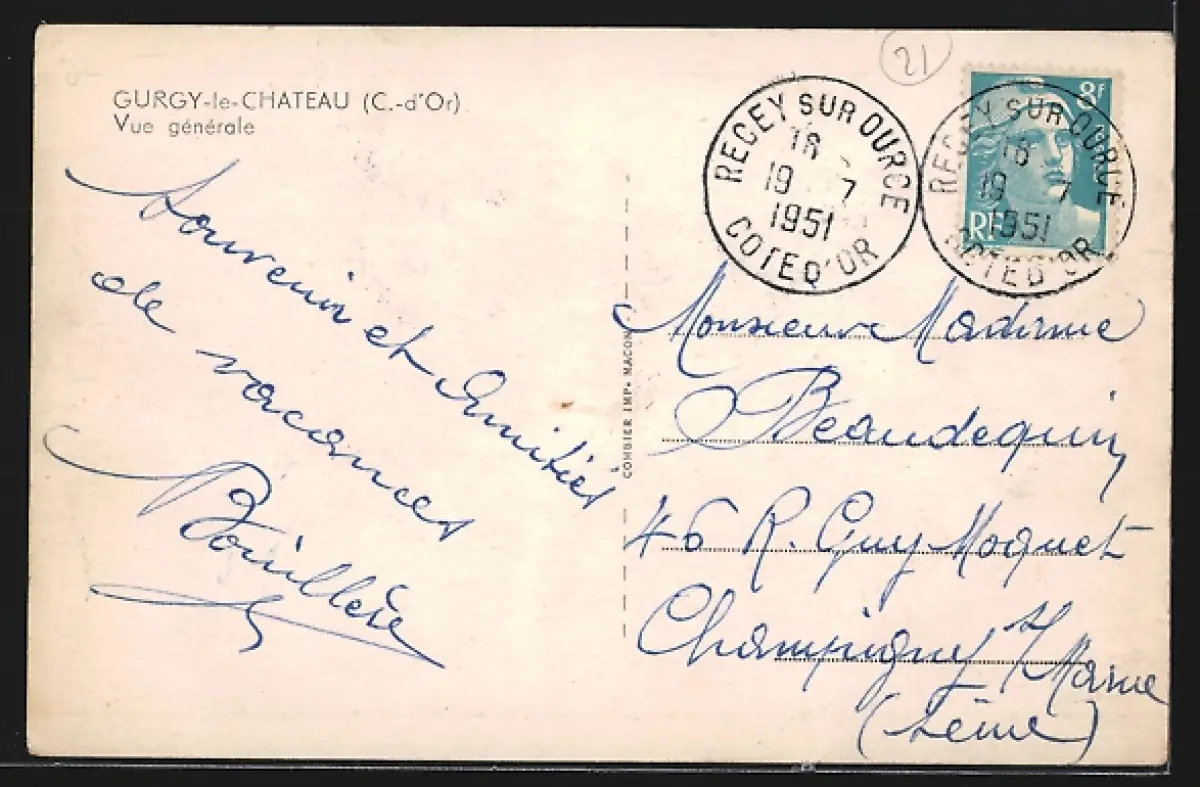 21
GURGY-le-CHATEAU (C.-d'Or)
Vue générale
Souvenir et Amitiés
de vacances
RECEY SUR OURCE
18
19 7
1951
COTE D'OR
8f
RF
RECEY SUR OURCE
18
19 7
1951
COTE D'OR
COMBIER IMP. MACON
Monsieur Madame
Beaudequin
46 R. Guy Moquet
Champigny s/ Marne
(Seine)